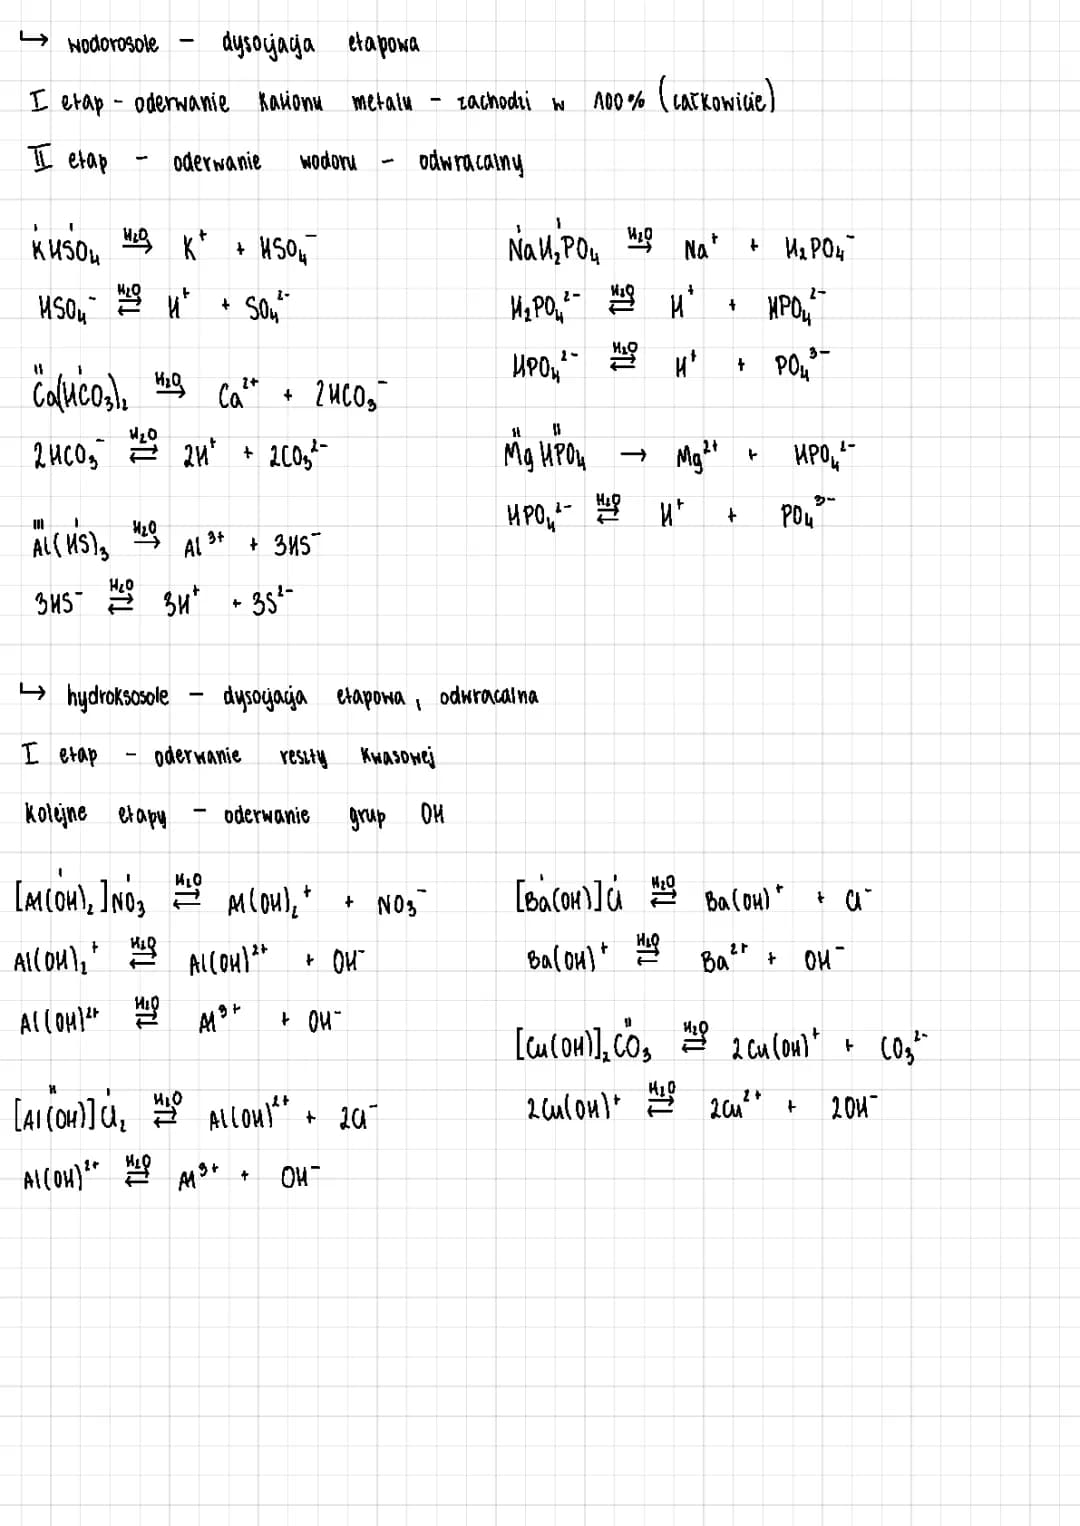 ↳ wodorosole – dysocjacja etapowa
I etap - oderwanie kationu metalu - zachodzi w 100% (całkowicie)
II etap - oderwanie wodoru - odwracalny
K^I HSO₄^I →(H₂O) K⁺ + HSO₄⁻
HSO₄⁻ ⇄(H₂O) H⁺ + SO₄²⁻
Ca^II(HCO₃)^I₂ →(H₂O) Ca²⁺ + 2HCO₃⁻
2HCO₃⁻ ⇄(H₂O) 2H⁺ + 2CO₃²⁻
Al^III(HS)^I₃ →(H₂O) Al³⁺ + 3HS⁻
3HS⁻ ⇄(H₂O) 3H⁺ + 3S²⁻
Na^I H₂PO₄^I →(H₂O) Na⁺ + H₂PO₄⁻
H₂PO₄²⁻ ⇄(H₂O) H⁺ + HPO₄²⁻
HPO₄²⁻ ⇄(H₂O) H⁺ + PO₄³⁻
Mg^II HPO₄^II → Mg²⁺ + HPO₄²⁻
HPO₄²⁻ ⇄(H₂O) H⁺ + PO₄³⁻
↳ hydroksosole – dysocjacja etapowa, odwracalna
I etap - oderwanie reszty kwasowej
Kolejne etapy - oderwanie grup OH
[Al(OH)₂]^I NO₃^I ⇄(H₂O) Al(OH)₂⁺ + NO₃⁻
Al(OH)₂⁺ ⇄(H₂O) Al(OH)²⁺ + OH⁻
Al(OH)²⁺ ⇄(H₂O) Al³⁺ + OH⁻
[Al(OH)]^II Cl^I₂ ⇄(H₂O) Al(OH)²⁺ + 2Cl⁻
Al(OH)²⁺ ⇄(H₂O) Al³⁺ + OH⁻
[Ba(OH)]^I Cl^I ⇄(H₂O) Ba(OH)⁺ + Cl⁻
Ba(OH)⁺ ⇄(H₂O) Ba²⁺ + OH⁻
[Cu(OH)]₂CO₃^II ⇄(H₂O) 2Cu(OH)⁺ + CO₃²⁻
2Cu(OH)⁺ ⇄(H₂O) 2Cu²⁺ + 2OH⁻